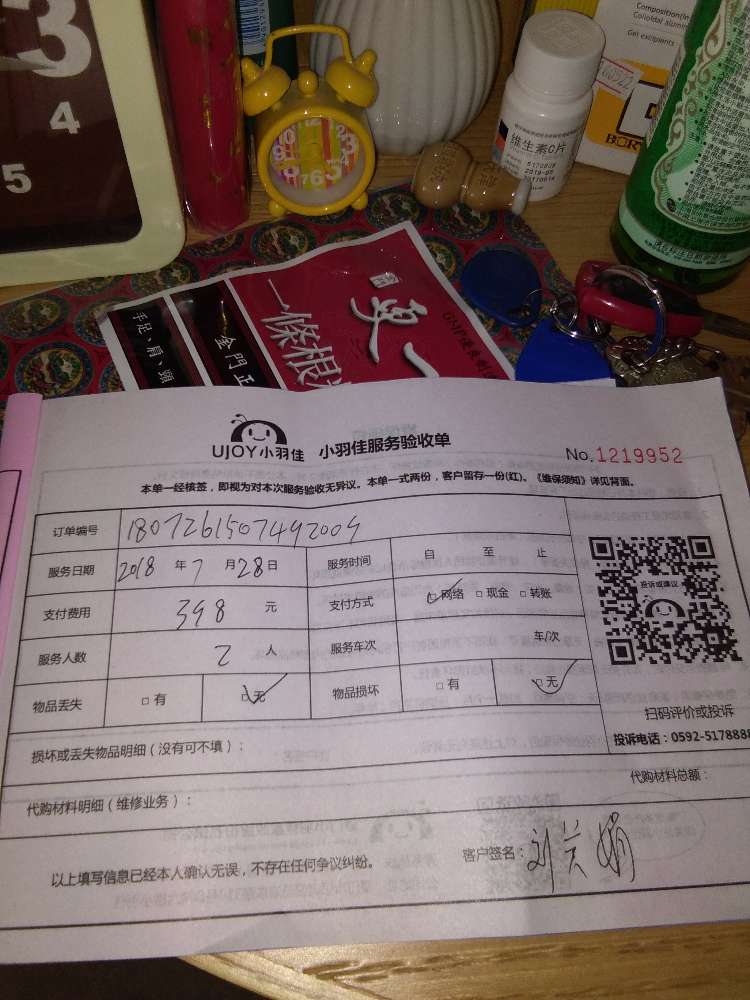 3
4
5
12
3
6
7
8
9
10
维生素C片
Composition(in
Colloidal alumin
Gel excipients
BOR
一條根
金門正
手足、肩、頸
UJOY小羽佳 小羽佳服务验收单
No.1219952
本单一经核签，即视为对本次服务验收无异议。本单一式两份，客户留存一份(红)。《维保须知》详见背面。
订单编号 1807261507492009
服务日期 2018 年 7 月 28 日 服务时间 自 至 止
支付费用 398 元 支付方式 ☑网络 □现金 □转账
服务人数 2 人 服务车次 车/次
物品丢失 □有 ☑无 物品损坏 □有 ☑无
投诉或建议
扫码评价或投诉
投诉电话：0592-5178888
损坏或丢失物品明细（没有可不填）：
代购材料明细（维修业务）： 代购材料总额：
以上填写信息已经本人确认无误，不存在任何争议纠纷。 客户签名：刘兰娟